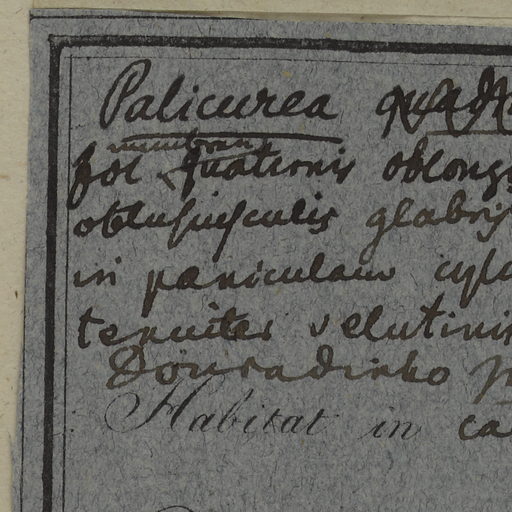 Palicurea
membran
fol quaternis oblong
obtusiusculis glabris
in paniculam cyl
tenuiter velutinis
Douradinho
Habitat in ca